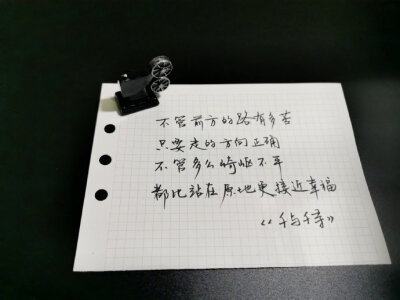 不管前方的路有多苦
只要走的方向正确
不管多么崎岖不平
都比站在原地更接近幸福
《千与千寻》